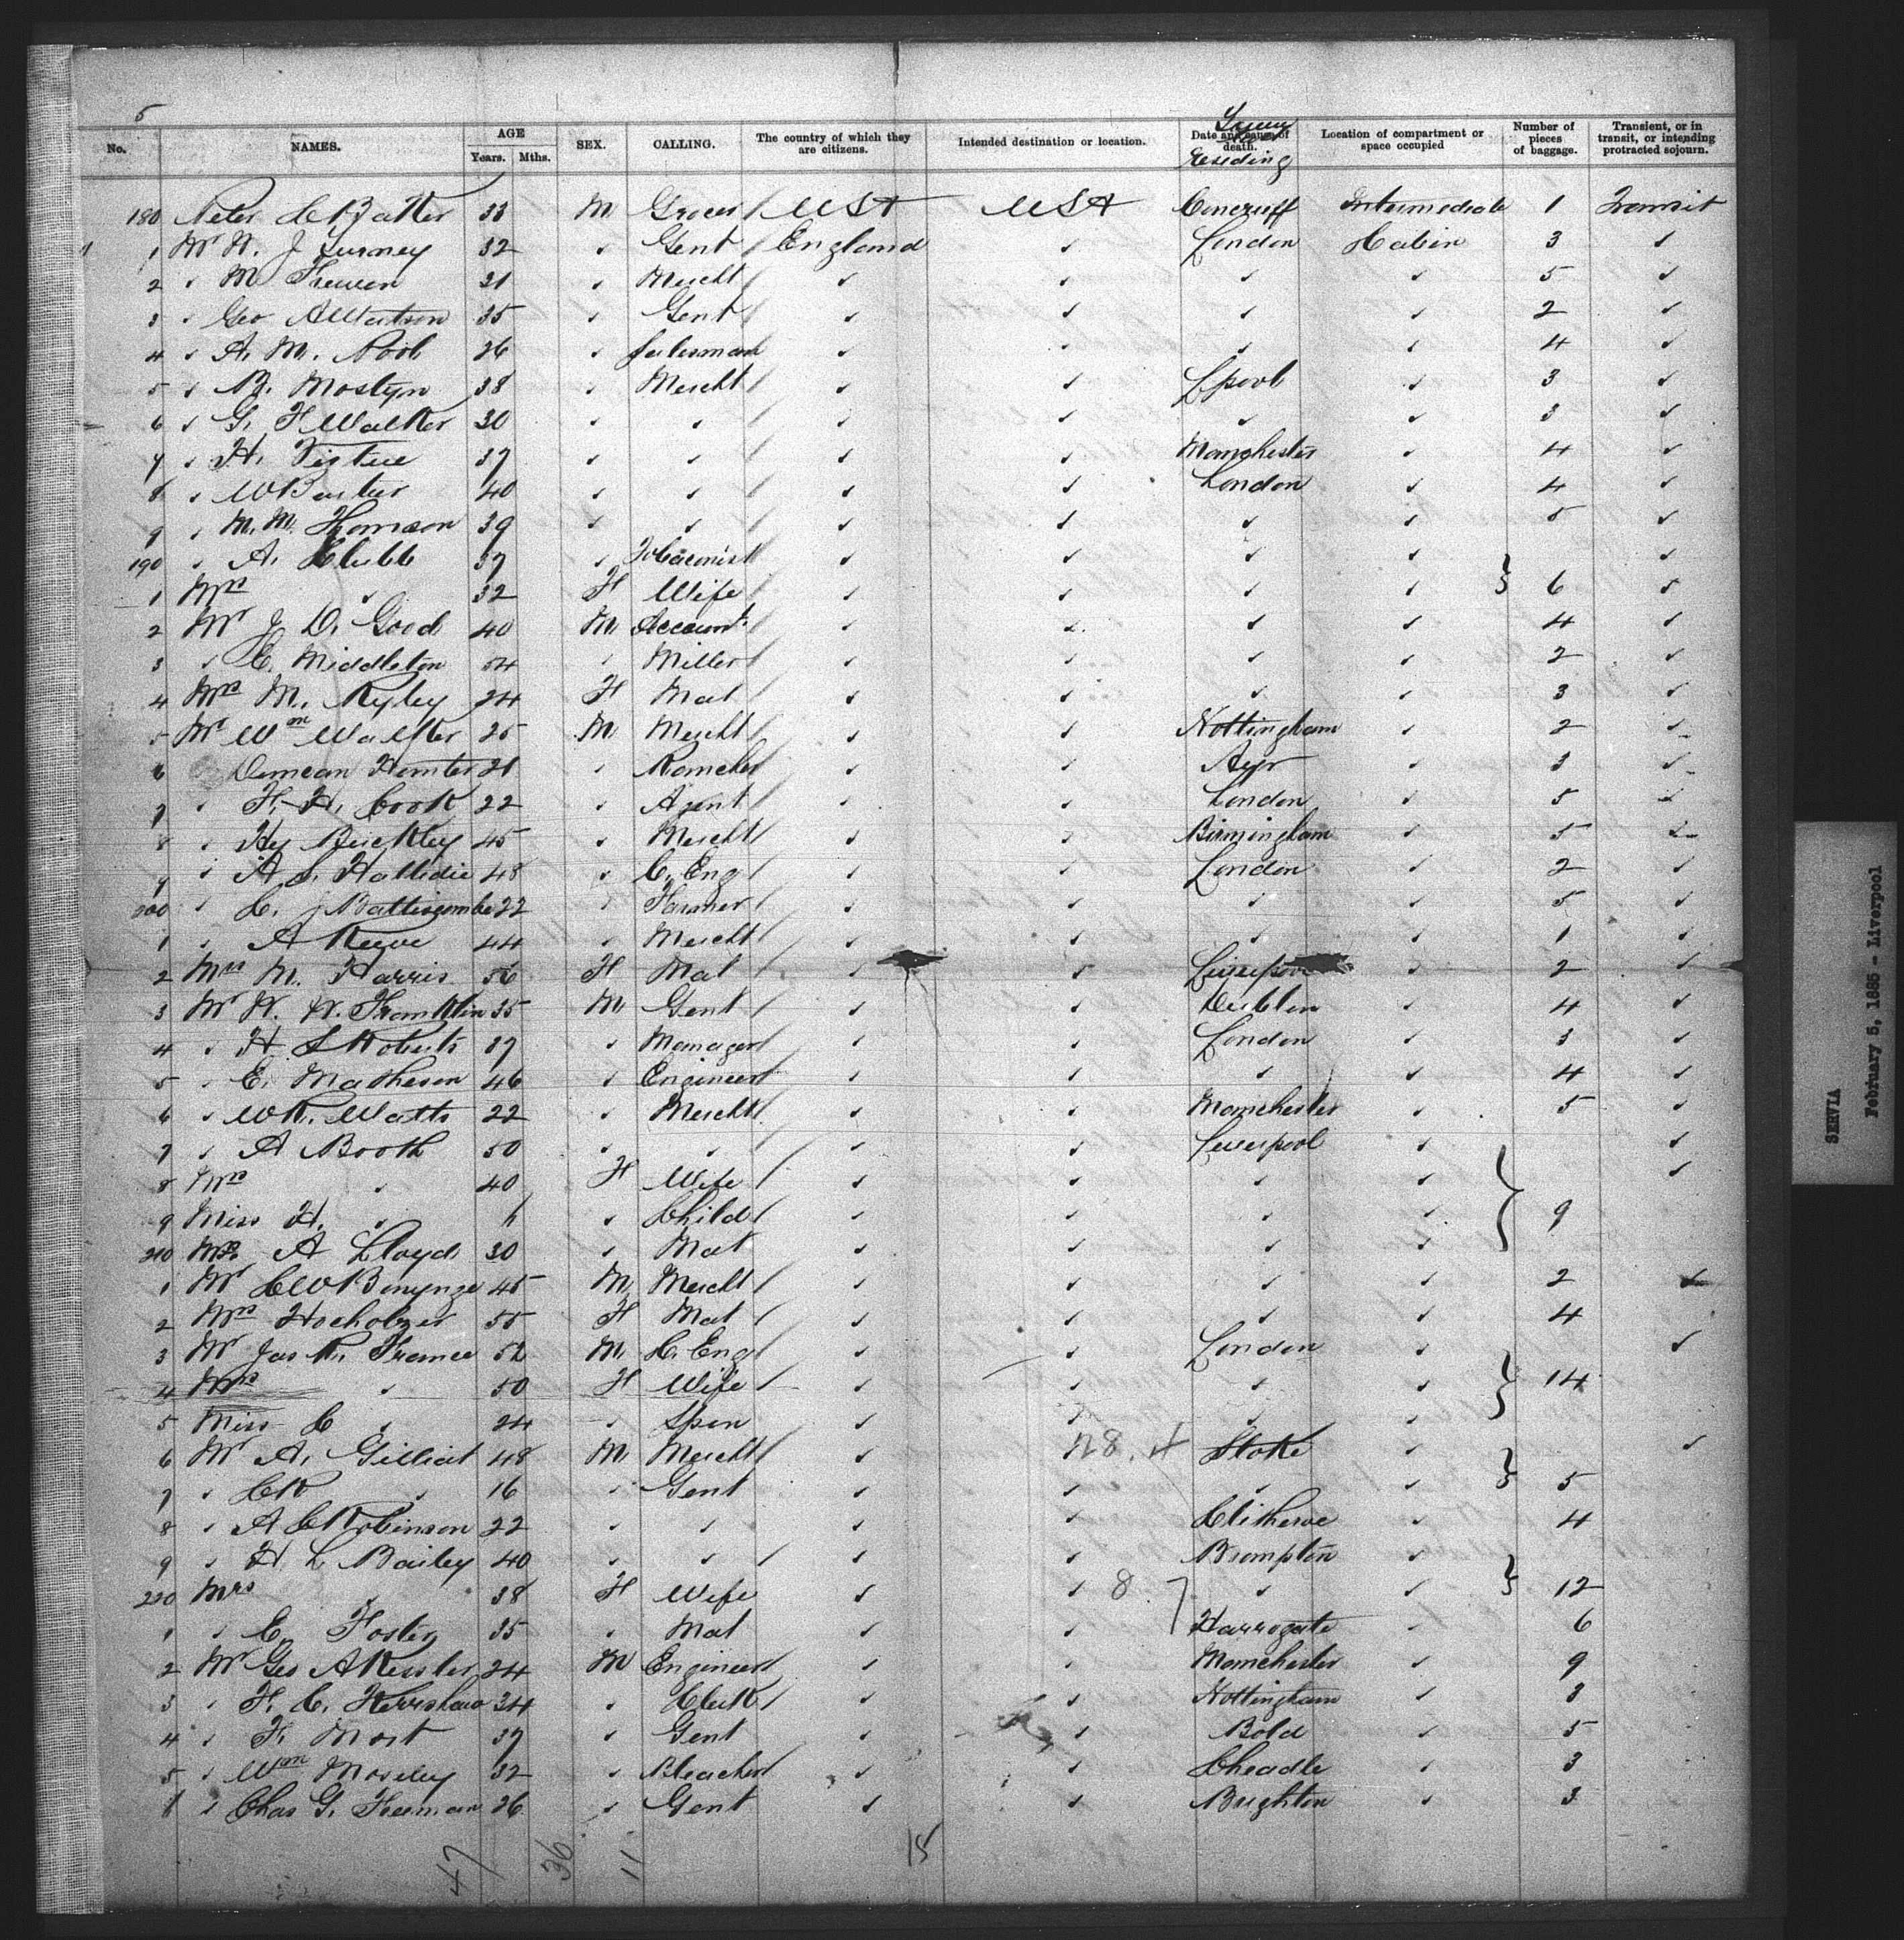 5
No. NAMES. AGE Years. Mths. SEX. CALLING. The country of which they are citizens. Intended destination or location. Date and cause of death. Residing Location of compartment or space occupied Number of pieces of baggage. Transient, or in transit, or intending protracted sojourn.
180 Peter 33 M Grocer USA USA Intermediate 1 Transit
1 Mr W. J. 32 " Gent England " London Cabin 3 "
2 " M 31 " Mercht " " " " 5 "
3 " Geo A Watson 35 " Gent " " " " 2 "
4 " A. M. Pool 26 " Salesman " " " " 4 "
5 " B. Mostyn 38 " Mercht " " Lpool " 3 "
6 " G. F Walker 30 " " " " " " 3 "
7 " H. Virtue 37 " " " " Manchester " 4 "
8 " W 40 " " " " London " 4 "
9 " M. M. Thomson 39 " " " " " " 5 "
190 " A. Chubb 37 " Tobaconist " " " " "
1 Mrs " 32 F Wife " " " " } 6 "
2 Mr J. D. Good 40 M Account. " " " " 4 "
3 " C. Middleton 54 " Miller " " " " 2 "
4 Mrs M. Ryley 24 F Mat " " " " 3 "
5 Mr Wm Walker 25 M Mercht " " Nottingham " 2 "
6 Duncan Hunter 21 " Rancher " " Ayr " 3 "
7 " F. H. Cook 22 " Agent " " London " 5 "
8 " Hy Buckley 45 " Mercht " " Birmingham " 5 "
9 " A S. Hallidie 48 " C. Eng " " London " 2 "
200 " C. J Battiscombe 22 " Farmer " " " " 5 "
1 " A Reeve 44 " Mercht " " " " 1 "
2 Mrs M. Harris 56 F Mat " " Liverpool " 2 "
3 Mr W. W. Franklin 35 M Gent " " Dublin " 4 "
4 " H S Roberts 37 " Manager " " London " 3 "
5 " E. Matheson 46 " Engineer " " " " 4 "
6 " W R. Watts 22 " Mercht " " Manchester " 5 "
7 " A Booth 50 " " " " Liverpool " "
8 Mrs " 40 F Wife " " " " "
9 Miss H. " " Child " " " " } 9
210 Mrs A Lloyd 30 " Mat " " " "
1 Mr C W 45 M Mercht " " " " 2 "
2 Mrs Hocholzer 55 F Mat " " " " 4
3 Mr Jas R. France 52 M C. Eng " " London " "
4 Mrs " 50 F Wife " " " " } 14
5 Miss C " 24 " Spin " " " "
6 Mr A. Gilliat 48 M Mercht " 28. 4 Stoke " "
7 " C R " 16 " Gent " " " " } 5
8 " A C Robinson 22 " " " " Clitheroe " 4
9 " H L Bailey 40 " " " " Brompton "
220 Mrs " 38 F Wife " " 8 7 " " } 12
1 " C. Foster 35 " Mat " " Harrogate " 6
2 Mr Geo A Kessler 24 M Engineer " " Manchester " 9
3 " F. C. Kerrshaw 34 " Clerk " " Nottingham " 3
4 " F. Most 37 " Gent " " Bold " 5
5 " Wm Moseley 32 " Bleacher " " Cheadle " 3
" Chas G. Freeman 26 " Gent " " Brighton " 3
47 36 11 18
SERVIA
February 5, 1885 - Liverpool